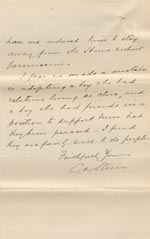 has me induced him to stay
away from the Home without
permission.
I fear we made a mistake
in adopting a boy who had
relatives living so close, and
a boy who had friends in a
position to support him had
they been
they are fairly well to do people
Faithfully Yours